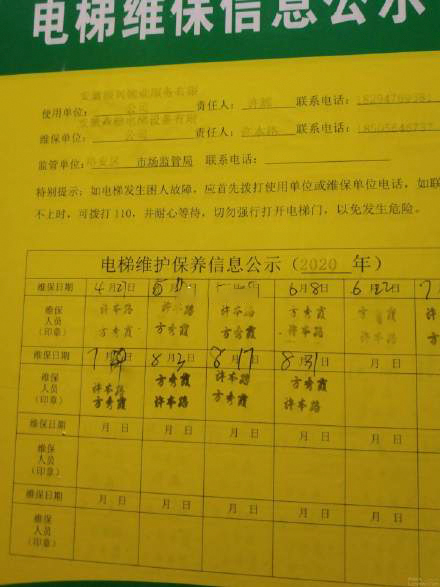 电梯维保信息公示
使用单位： 公司 责任人： 联系电话：
维保单位： 公司 责任人：许本路 联系电话：
监管单位： 裕安区 市场监管局 联系电话：
特别提示：如电梯发生困人故障，应首先拨打使用单位或维保单位电话，如联
不上时，可拨打110，并耐心等待，切勿强行打开电梯门，以免发生危险。
电梯维护保养信息公示（2020 年）
维保日期 4月21日 月 6月8日 6月22日 7
维保 许本路 许本路 许本路 方秀霞
人员
（印章） 方秀霞 方秀霞 方秀霞 许本路
维保日期 7月 日 8月3日 8月17日 8月31日 月 日
维保 许本路 方秀霞 许本路 方秀霞
人员
（印章） 方秀霞 许本路 方秀霞 许本路
维保日期 月 日 月 日 月 日 月 日 月 日
维保
人员
（印章）
维保日期 月 日 月 日 月 日 月 日 月 日
维保
人员
（印章）